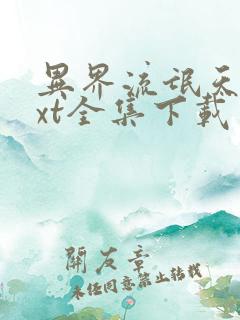 異界流氓天
xt全集下載
開友章
未经同意禁止转载